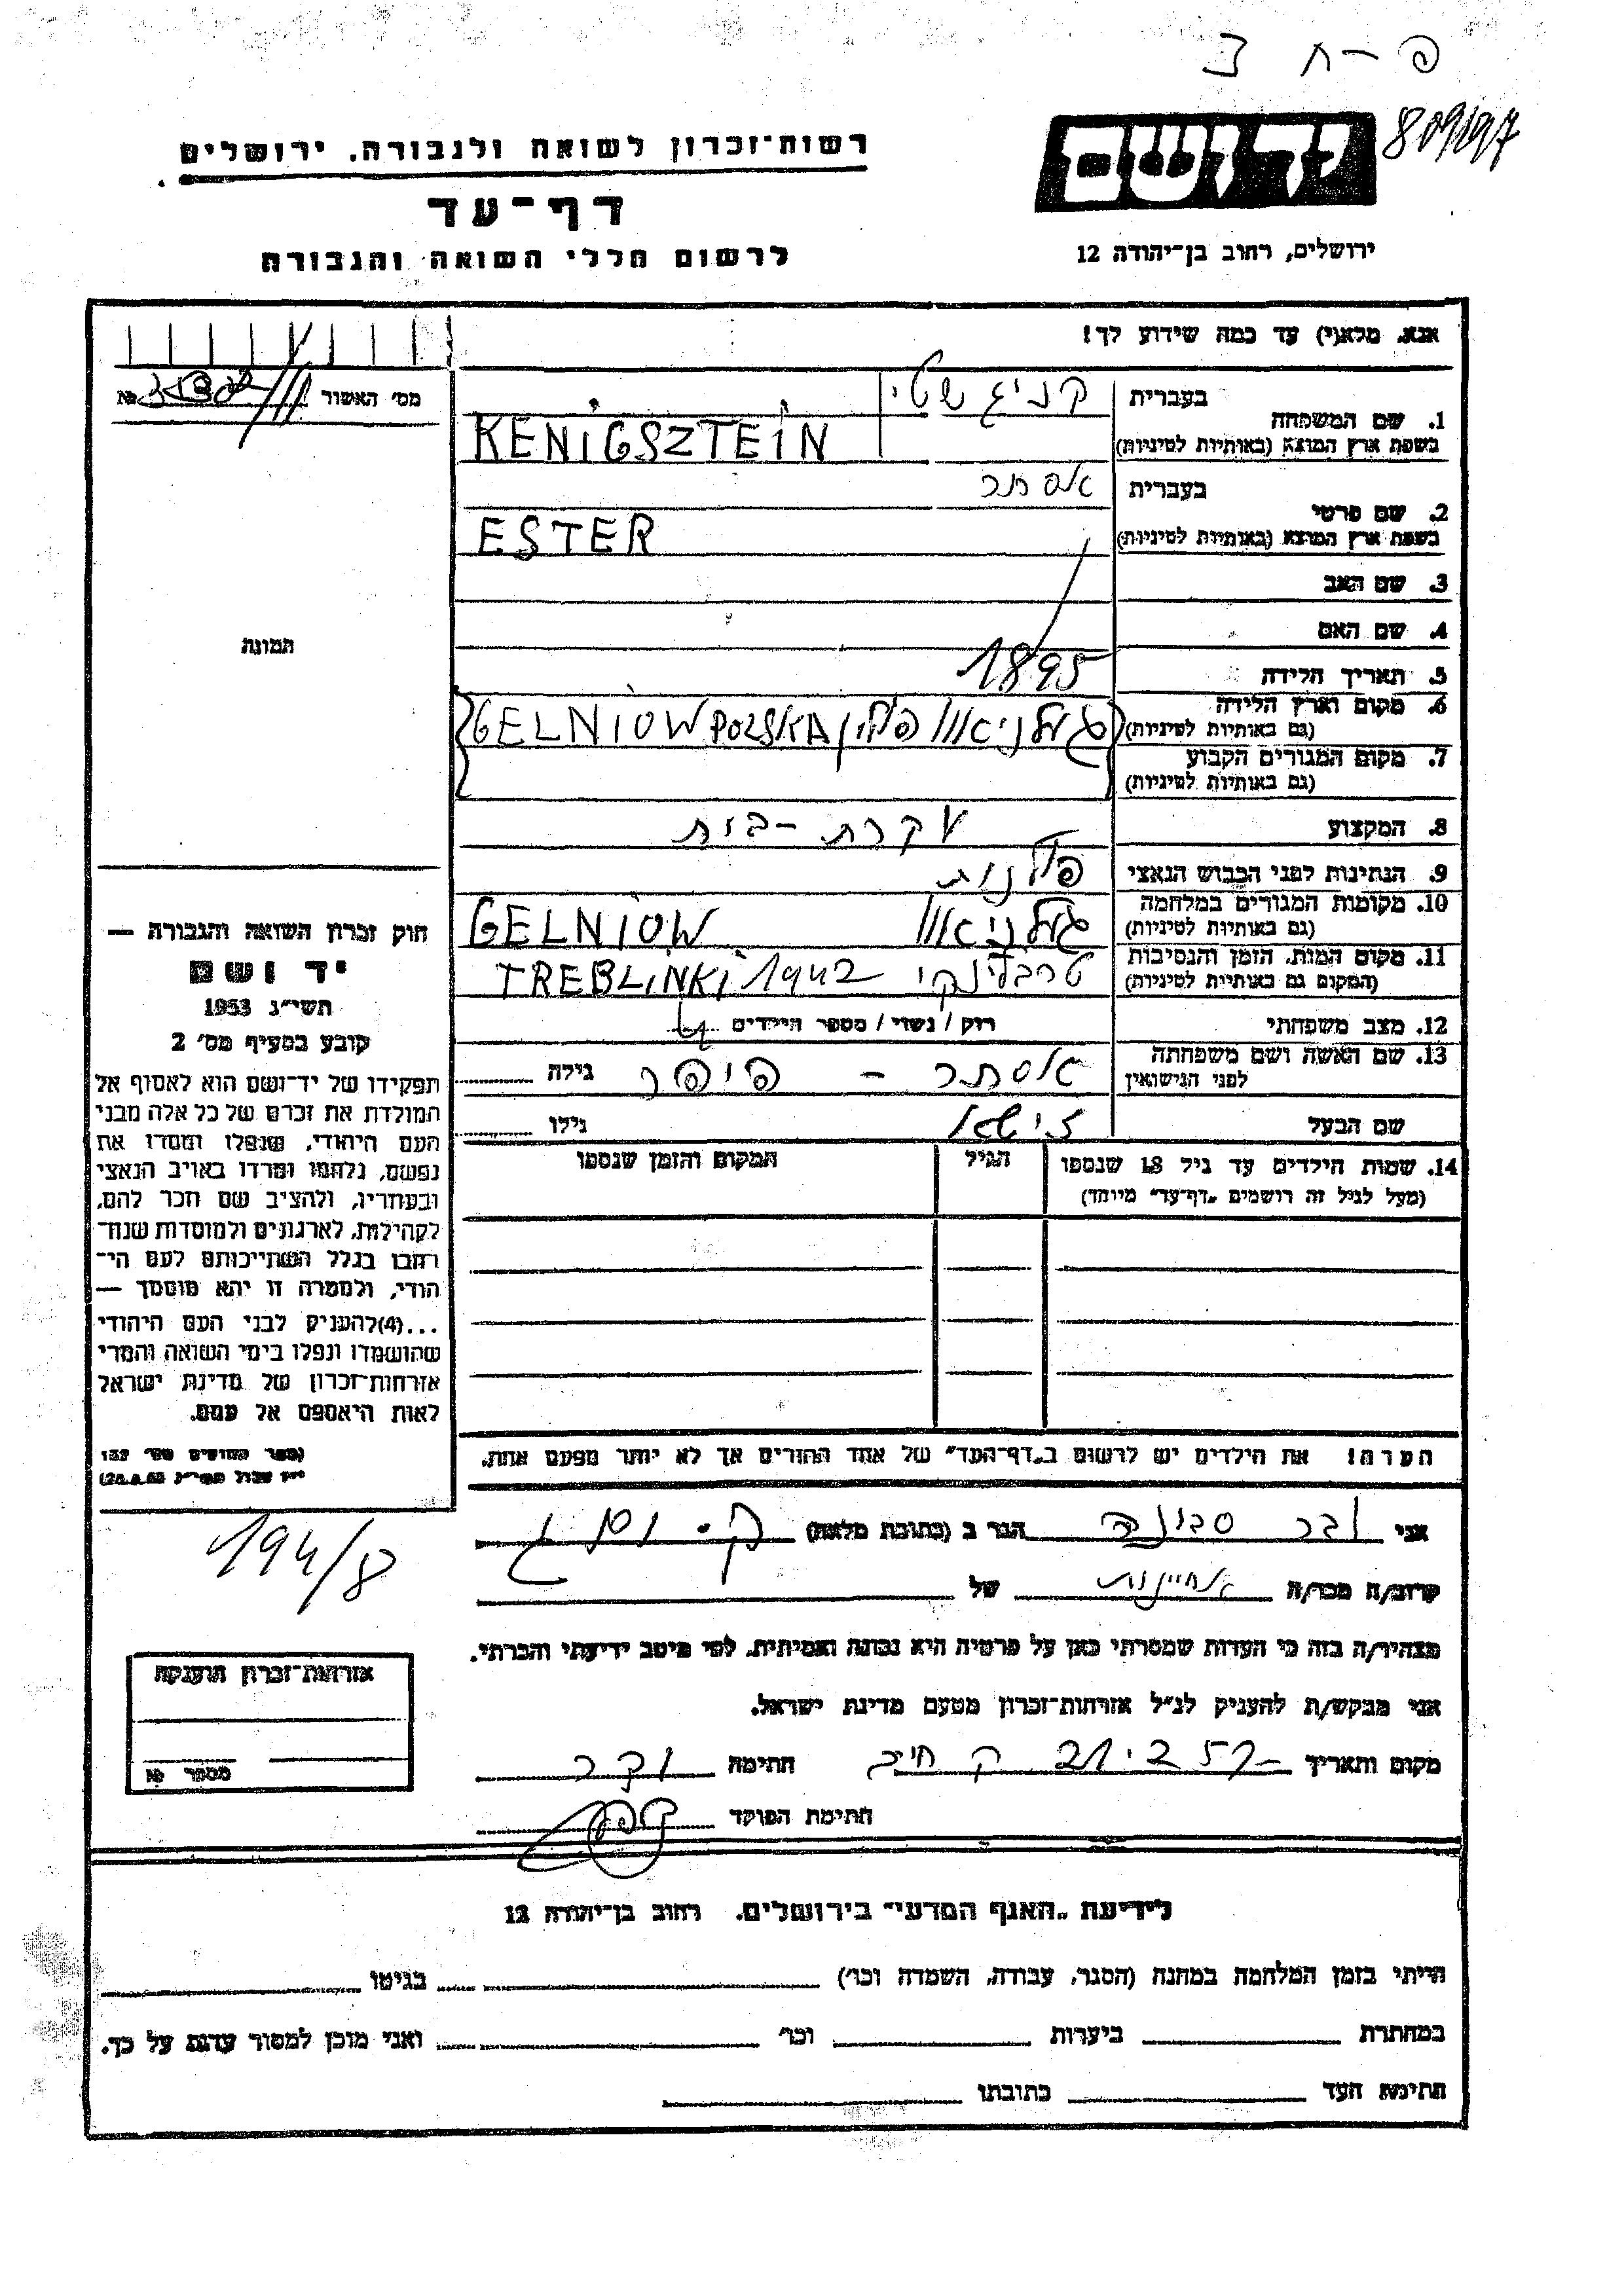 פ – ח ב
רשות־זכרון לשואה ולגבורה. ירושלים
יד ושם
דף־עד
לרשום חללי השואה והגבורה
ירושלים, רחוב בן־יהודה 12
אנא, מלא(י) עד כמה שידוע לך!
מס׳ האשור №
1. שם המשפחה
בעברית קניגשטיין
בשפת ארץ המוצא (באותיות לטיניות) KENIGSZTEIN
2. שם פרטי
בעברית אסתר
בשפת ארץ המוצא (באותיות לטיניות) ESTER
3. שם האב
4. שם האם
תמונה
5. תאריך הלידה 1895
6. מקום וארץ הלידה
(גם באותיות לטיניות) גלניאוו פולין GELNIOW POLSKA
7. מקום המגורים הקבוע
(גם באותיות לטיניות)
8. המקצוע עקרת - בית
9. הנתינות לפני הכבוש הנאצי פולנית
10. מקומות המגורים במלחמה
(גם באותיות לטיניות) גלניאוו GELNIOW
11. מקום המות, הזמן והנסיבות
(המקום גם באותיות לטיניות) טרבלינקי 1942 TREBLINKI
12. מצב משפחתי רוק / נשוי / מספר הילדים
13. שם האשה ושם משפחתה
לפני הנישואין אסתר – פיפר גילה
שם הבעל גילו
14. שמות הילדים עד גיל 18 שנספו הגיל המקום והזמן שנספו
(מעל לגיל זה רושמים „דף־עד" מיוחד)
הערה! את הילדים יש לרשום ב„דף־העד" של אחד ההורים אך לא יותר מפעם אחת.
חוק זכרון השואה והגבורה —
יד ושם
תשי״ג 1953
קובע בסעיף מס׳ 2
תפקידו של יד־ושם הוא לאסוף אל
המולדת את זכרם של כל אלה מבני
העם היהודי, שנפלו ומסרו את
נפשם, נלחמו ומרדו באויב הנאצי
ובעוזריו, ולהציב שם וזכר להם,
לקהילות, לארגונים ולמוסדות שנח־
רבו בגלל השתייכותם לעם הי־
הודי, ולמטרה זו יהא מוסמך —
...(4)להעניק לבני העם היהודי
שהושמדו ונפלו בימי השואה והמרי
אזרחות־זכרון של מדינת ישראל
לאות היאספם אל עמם.
(ספר החוקים מס׳ 132
194/8
אני הגר ב (כתובת מלאה)
קרוב/ה מכר/ה אחיינות של
מצהיר/ה בזה כי העדות שמסרתי כאן על פרטיה היא נכונה ואמיתית, לפי מיטב ידיעתי והכרתי.
אני מבקש/ת להעניק לנ״ל אזרחות־זכרון מטעם מדינת ישראל.
מקום ותאריך חתימה
חתימת הפוקד
אזרחות־זכרון הוענקה
מספר №
לידיעת „האגף המדעי" בירושלים. רחוב בן־יהודה 12
הייתי בזמן המלחמה במחנה (הסגר, עבודה, השמדה וכו׳) בגיטו
במחתרת ביערות וכו׳ ואני מוכן למסור עדות על כך.
חתימת העד כתובתו